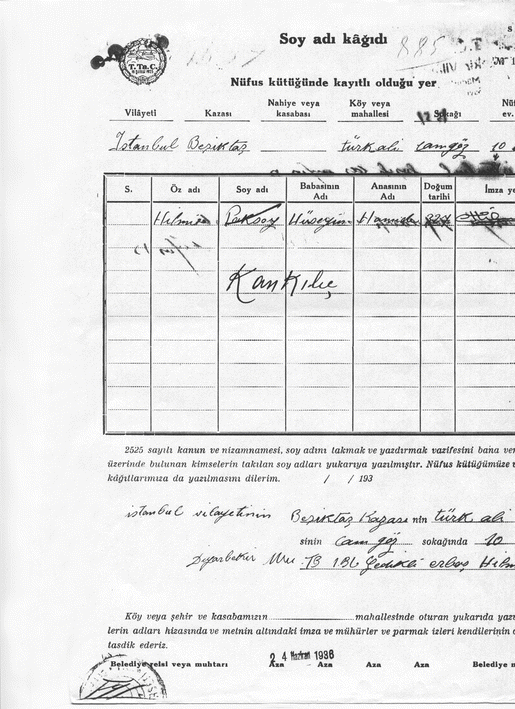 Soy adı kâğıdı
885
T. Tα. C.
Nüfus kütüğünde kayıtlı olduğu yer
Vilâyeti Kazası Nahiye veya kasabası Köy veya mahallesi Sokağı Nü
ev.
İstanbul Beşiktaş türkali camgöz 10
S. Öz adı Soy adı Babasının Adı Anasının Adı Doğum tarihi İmza ye
Hilmi Peksoy Hüseyin Hamide 327
Kankılıç
2525 sayılı kanun ve nizamnamesi, soy adını takmak ve yazdırmak vazifesini bana ver
üzerinde bulunan kimselerin takılan soy adları yukarıya yazılmıştır. Nüfus kütüğümüze v
kâğıtlarımıza da yazılmasını dilerim. / / 193
istanbul vilayetinin Beşiktaş Kazası nin türk ali
sinin cam göz sokağında 10
Diyarbekir Gedikli erbaş Hilm
Köy veya şehir ve kasabamızın mahallesinde oturan yukarıda yazı
lerin adları hizasında ve metnin altındaki imza ve mühürler ve parmak izleri kendilerinin o
tasdik ederiz.
2 4 Haziran 1936
Belediye reisi veya muhtarı Aza Aza Aza Aza Belediye m